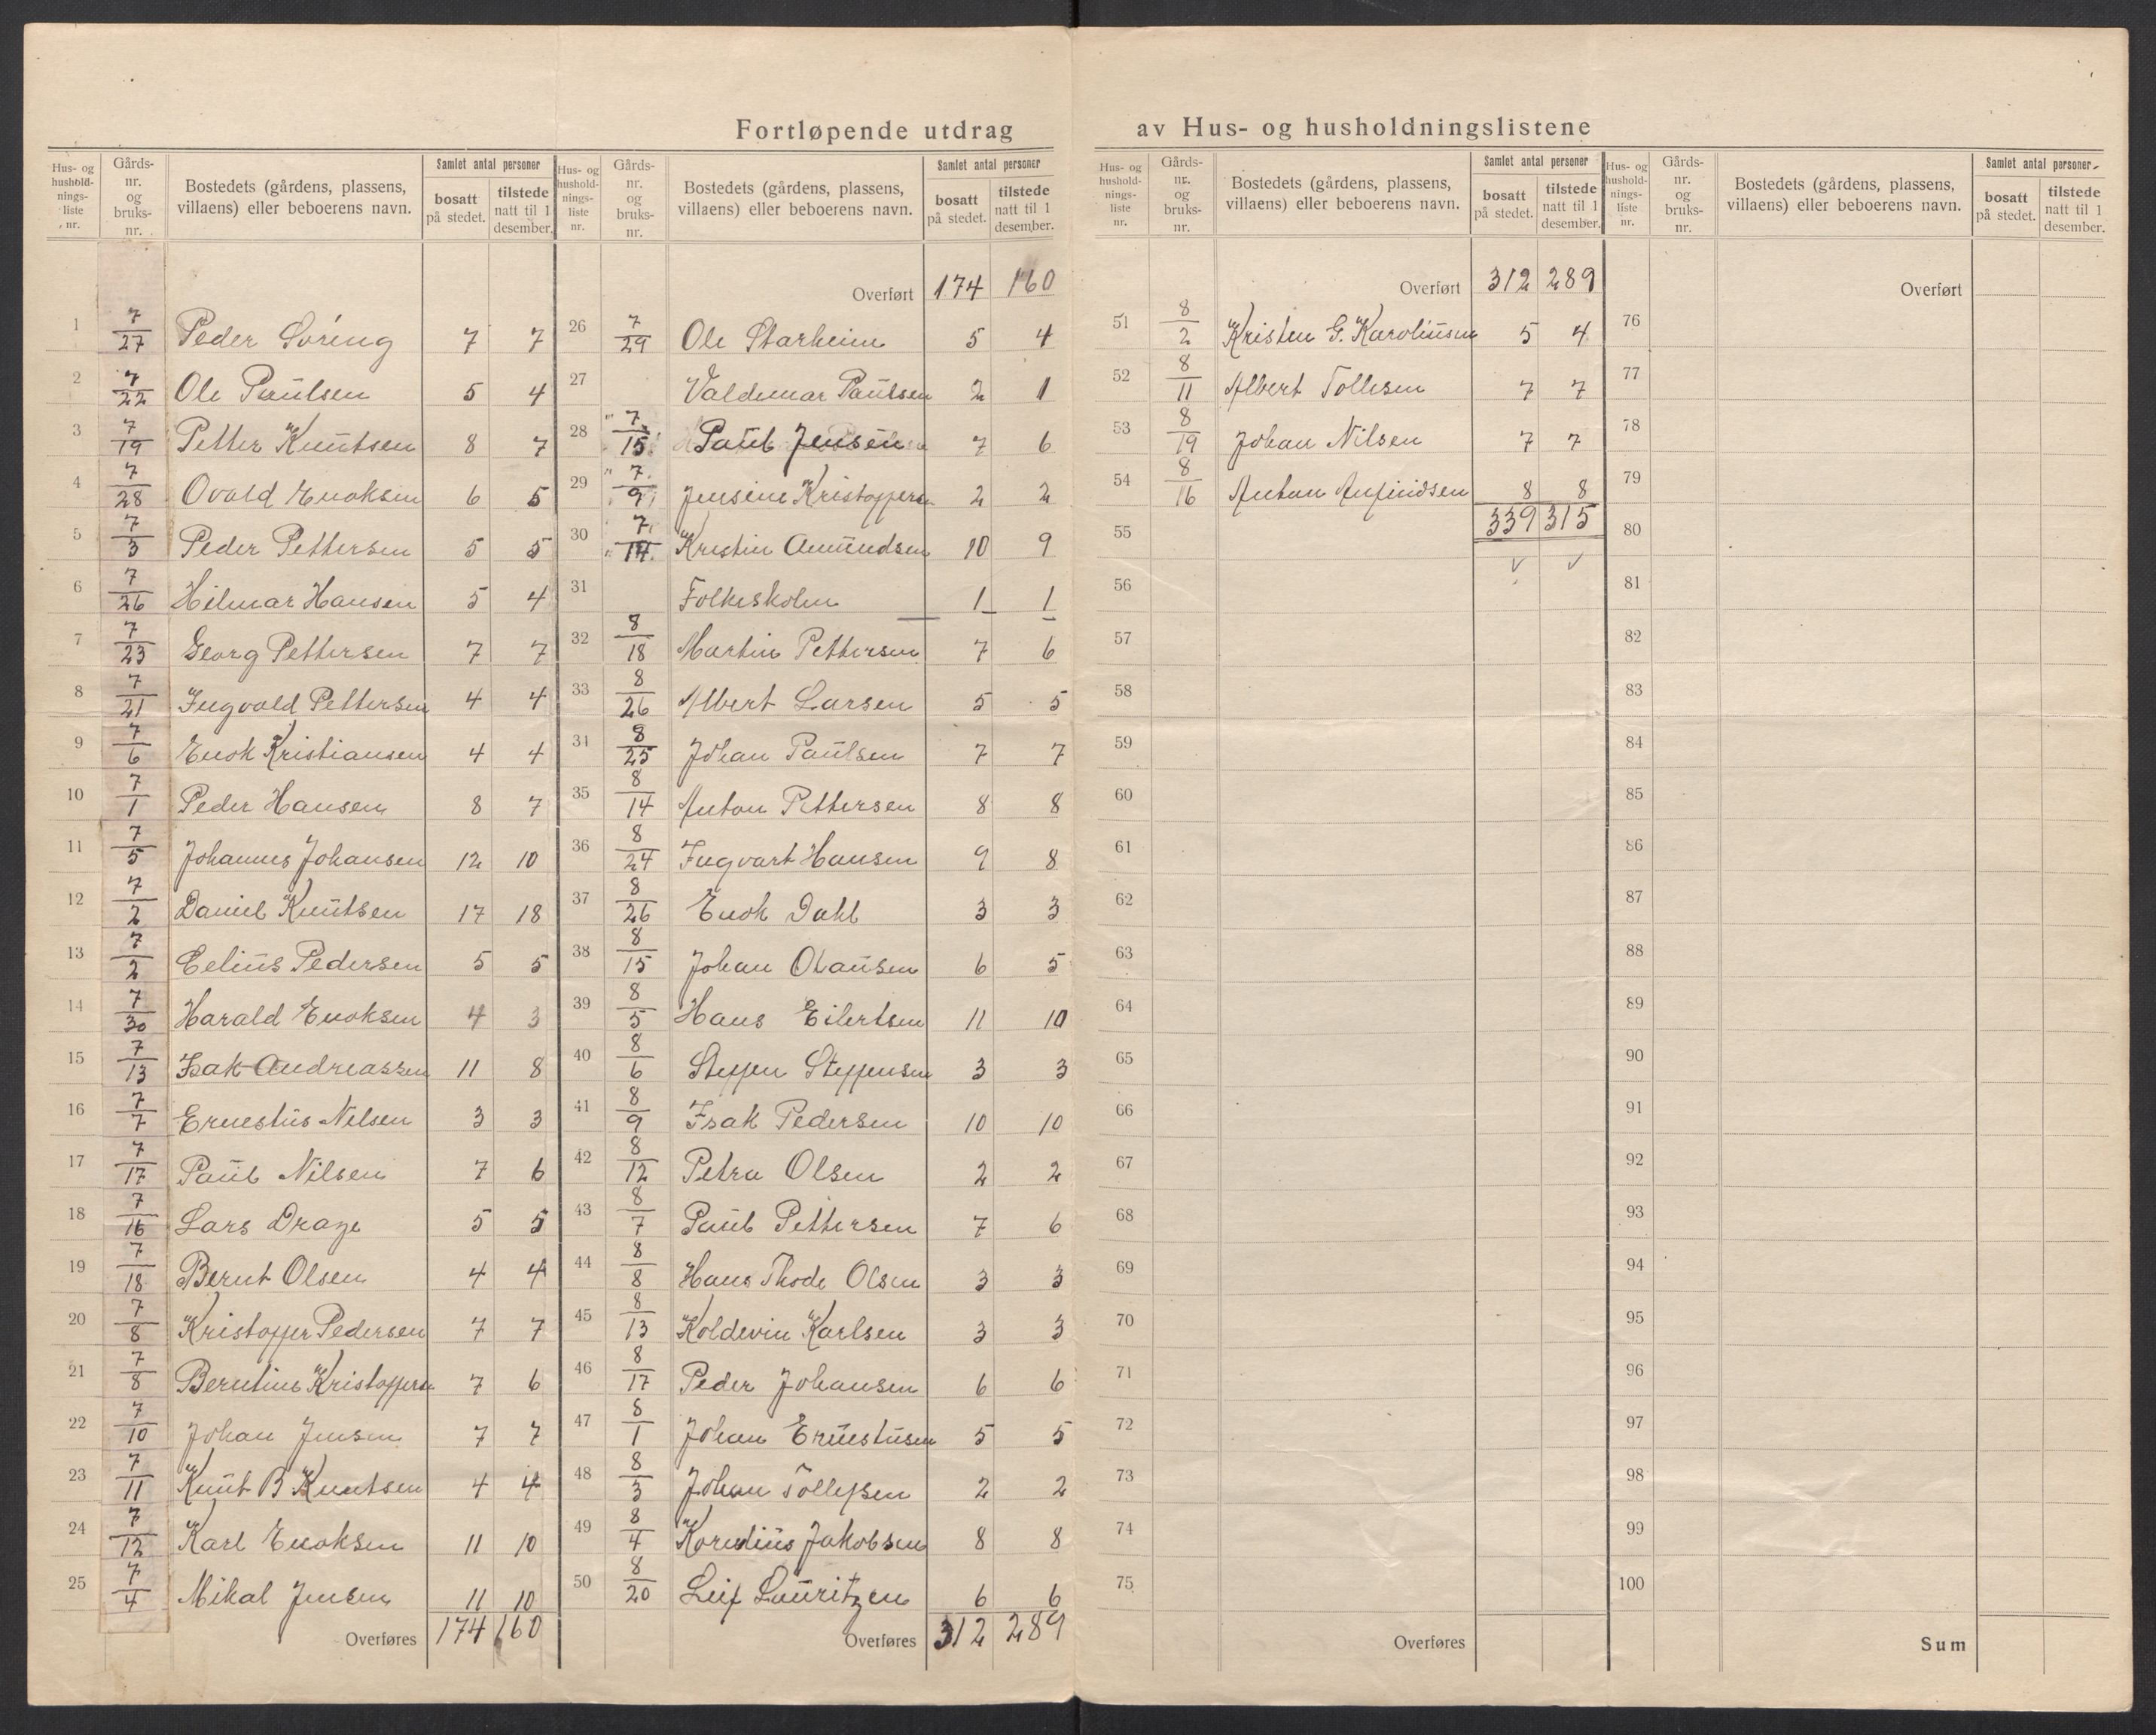 Fortløpende utdrag av Hus- og husholdningslistene
Hus- og hushold-nings-liste nr. | Gårds-nr. og bruks-nr. | Bostedets (gårdens, plassens, villaens) eller beboerens navn. | Samlet antal personer bosatt på stedet. | tilstede natt til 1 desember.
1 7/27 Peder Søring 7 7
2 7/22 Ole Paulsen 5 4
3 7/19 Petter Knutsen 8 7
4 7/28 Ovald Enoksen 6 5
5 7/3 Peder Pettersen 5 5
6 7/26 Hilmar Hansen 5 4
7 7/23 Georg Pettersen 7 7
8 7/21 Ingvald Pettersen 4 4
9 7/6 Enok Kristiansen 4 4
10 7/1 Peder Hansen 8 7
11 7/5 Johannes Johansen 12 10
12 7/2 Daniel Knutsen 17 18
13 7/2 Edius Pedersen 5 5
14 7/30 Harald Enoksen 4 3
15 7/13 Isak Andreassen 11 8
16 7/7 Ernestus Nilsen 3 3
17 7/17 Paul Nilsen 7 6
18 7/16 Lars Drage 5 5
19 7/18 Bernt Olsen 4 4
20 7/8 Kristoffer Pedersen 7 7
21 7/8 Berntine Kristoffersen 7 6
22 7/10 Johan Jensen 7 7
23 7/11 Knut B Knutsen 4 4
24 7/12 Karl Enoksen 11 10
25 7/4 Mikal Jensen 11 10
Overføres 174 160
Hus- og hushold-nings-liste nr. | Gårds-nr. og bruks-nr. | Bostedets (gårdens, plassens, villaens) eller beboerens navn. | Samlet antal personer bosatt på stedet. | tilstede natt til 1 desember.
Overført 174 160
26 7/29 Ole Starheim 5 4
27 Valdemar Paulsen 2 1
28 7/15 Paul Jensen 7 6
29 7/9 Jensine Kristoffersen 2 2
30 7/14 Kristin Amundsen 10 9
31 Folkeskolen 1 1
32 8/18 Martin Pettersen 7 6
33 8/26 Albert Larsen 5 5
34 8/25 Johan Paulsen 7 7
35 8/14 Anton Pettersen 8 8
36 8/24 Ingvart Hansen 9 8
37 8/26 Enok Dahl 3 3
38 8/15 Johan Olausen 6 5
39 8/5 Hans Eilertsen 11 10
40 8/6 Steffen Steffensen 3 3
41 8/9 Isak Pedersen 10 10
42 8/12 Petra Olsen 2 2
43 8/7 Paul Pettersen 7 6
44 8/8 Hans Thode Olsen 3 3
45 8/13 Koldevin Karlsen 3 3
46 8/17 Peder Johansen 6 6
47 8/1 Johan Ernestusen 5 5
48 8/3 Johan Tollefsen 2 2
49 8/4 Kornelius Jakobsen 8 8
50 8/20 Leif Lauritzen 6 6
Overføres 312 289
Hus- og hushold-nings-liste nr. | Gårds-nr. og bruks-nr. | Bostedets (gårdens, plassens, villaens) eller beboerens navn. | Samlet antal personer bosatt på stedet. | tilstede natt til 1 desember.
Overført 312 289
51 8/2 Kristen G. Karoliusen 5 4
52 8/11 Albert Tollesen 7 7
53 8/19 Johan Nilsen 7 7
54 8/16 Anton Anfindsen 8 8
55 339 315
56 v v
57
58
59
60
61
62
63
64
65
66
67
68
69
70
71
72
73
74
75
Overføres
Hus- og hushold-nings-liste nr. | Gårds-nr. og bruks-nr. | Bostedets (gårdens, plassens, villaens) eller beboerens navn. | Samlet antal personer bosatt på stedet. | tilstede natt til 1 desember.
Overført
76
77
78
79
80
81
82
83
84
85
86
87
88
89
90
91
92
93
94
95
96
97
98
99
100
Sum